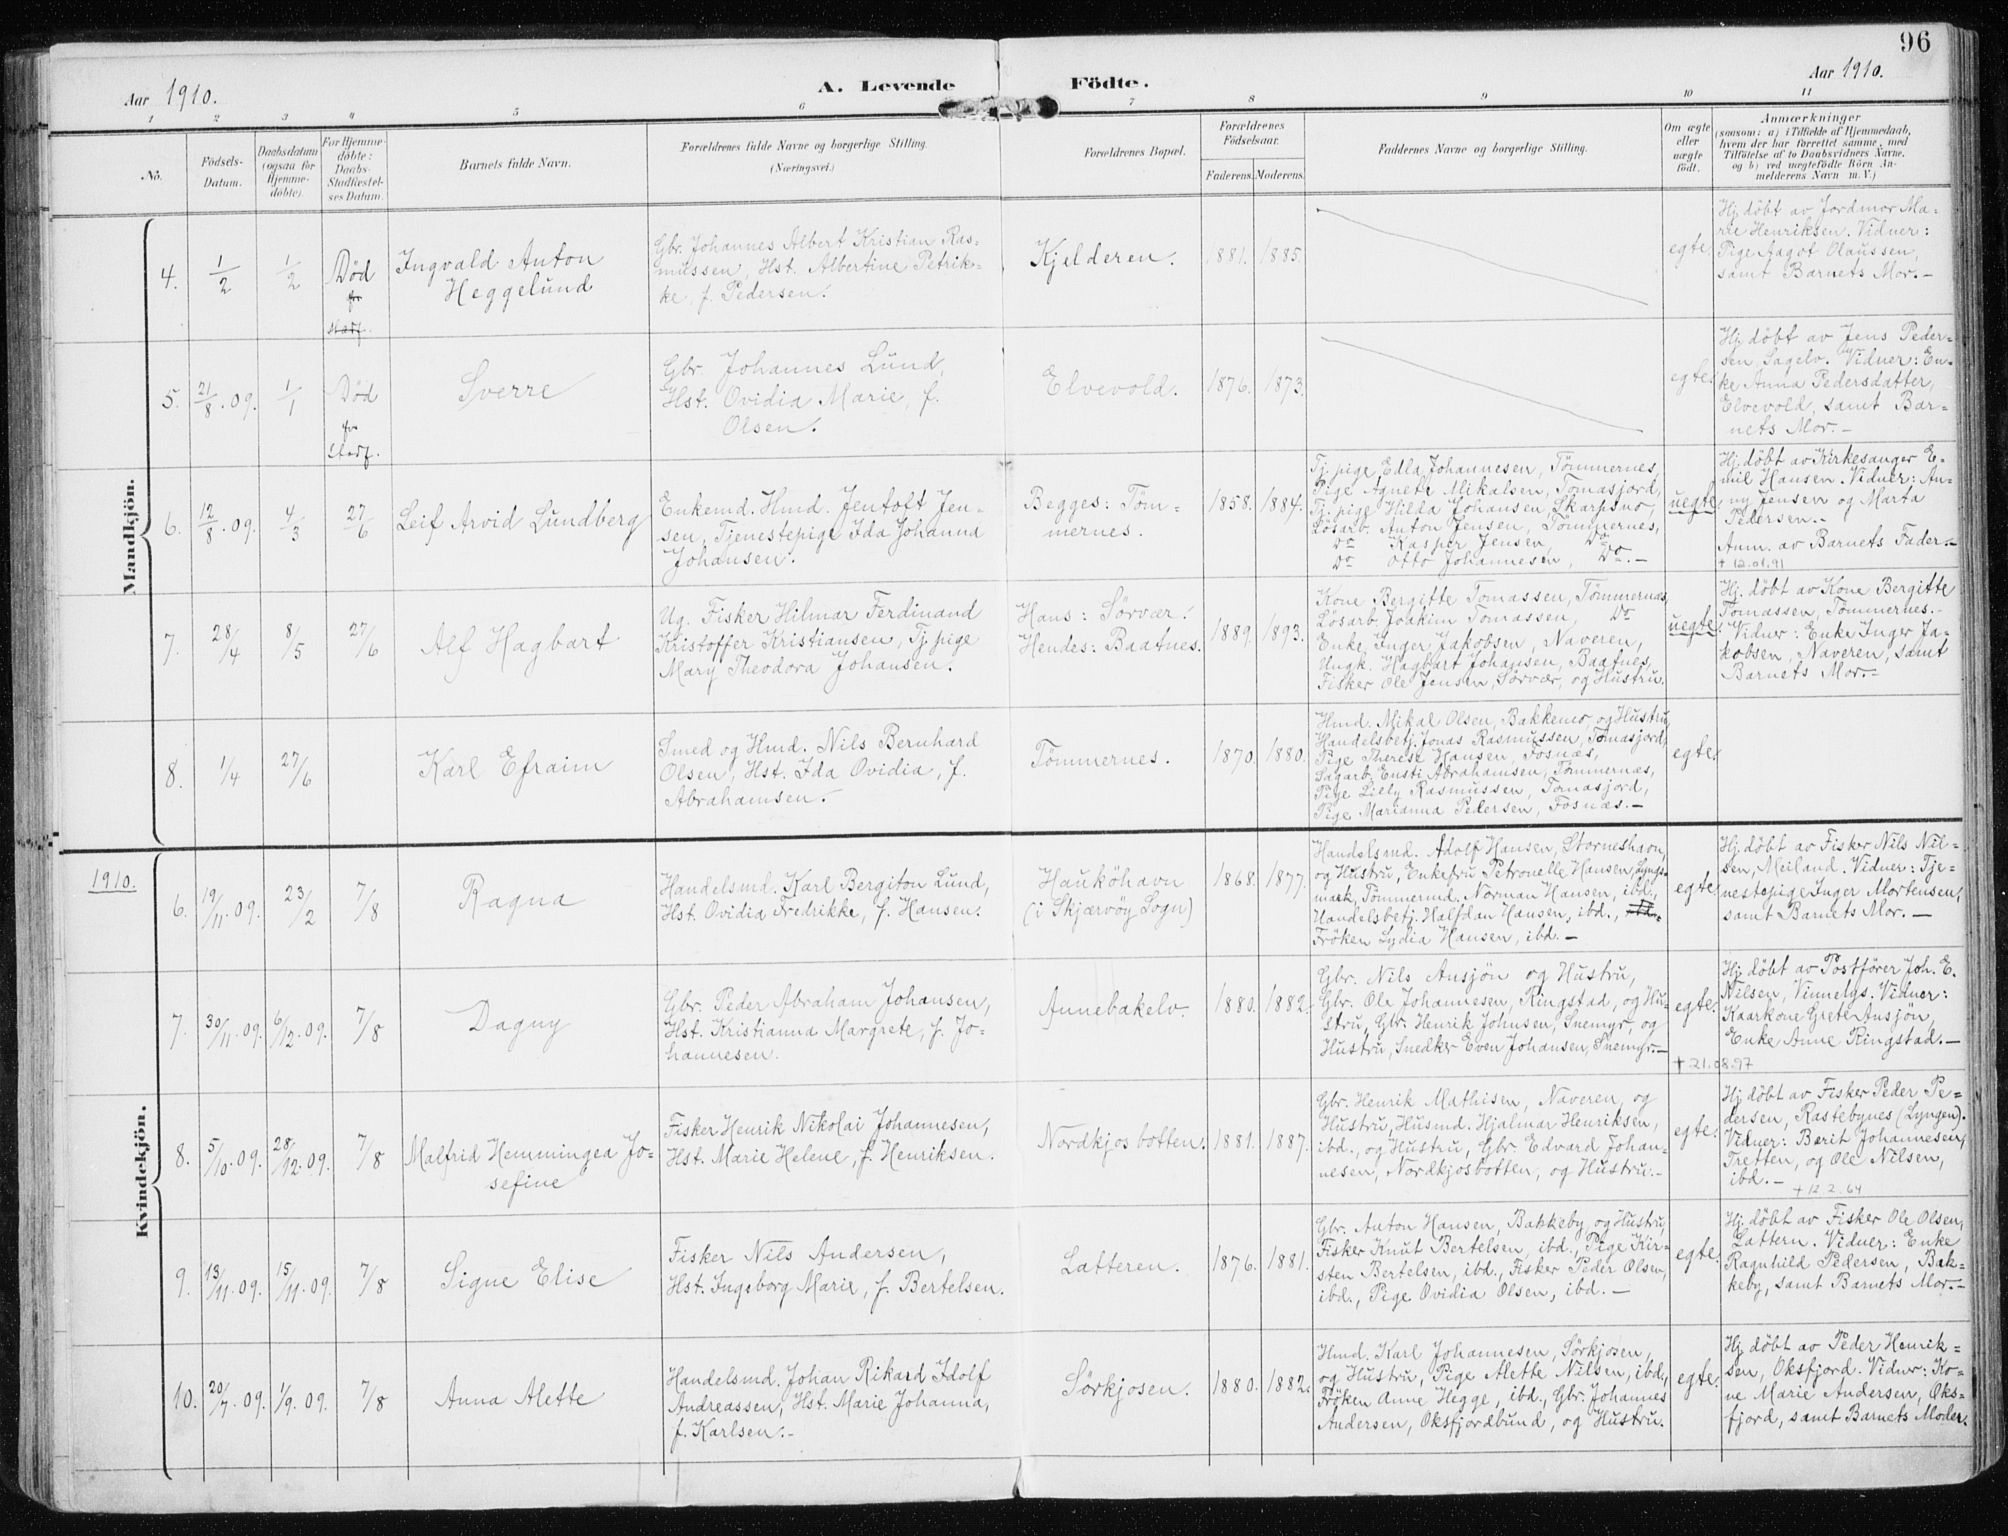 96
Aar 1910.
A. Levende Födte.
Aar 1910.
1 2 3 4 5 6 7 8 9 10 11
No.
Födsels-
Datum.
Daabsdatum
(ogsaa for
Hjemme-
döbte).
For Hjemme-
döbte:
Daabs-
Stadfæstel-
ses Datum.
Barnets fulde Navn.
Forældrenes fulde Navne og borgerlige Stilling.
(Næringsvei.)
Forældrenes Bopæl.
Forældrenes
Födselsaar.
Faderens. Moderens.
Faddernes Navne og borgerlige Stilling.
Om ægte
eller
uægte
født.
Anmærkninger
(saasom: a) i Tilfælde af Hjemmedaab,
hvem der har forrettet samme, med
Tilföielse af to Daabsvidners Navne,
og b) ved uægtefödte Börn An-
melderens Navn m. V.)
Mandkjön.
4.
1/2
1/2
Död
før
stadf.
Ingvald Anton
Heggelund
Gbr. Johannes Albert Kristian Ras-
mussen, Hst. Albertine Petrik-
ke, f. Pedersen.
Kjelderen.
1881. 1885.
egte.
Hj. döbt av Jordmor Ma-
rie Henriksen. Vidner:
Pige Aagot Olaussen,
samt Barnets Mor.-
5.
21/8.09.
1/1
Död
før
stadf.
Sverre
Gbr. Johannes Lund,
Hst. Ovidia Marie, f.
Olsen.
Elvevold.
1876. 1873.
egte.
Hj. döbt av Jens Peder-
sen, Sagelv. Vidner: En-
ke Anna Pedersdatter,
Elvevold, samt Bar-
nets Mor.-
6.
12/8.09.
4/3
27/6
Leif Arvid Lundberg
Enkemd. Hmd. Jentoft Jen-
sen, Tjenestepige Ida Johanna
Johansen.
Begges: Töm-
mernes.
1858. 1884.
Tj. pige Edla Johannesen, Tömmernes,
Pige Agnete Mikalsen, Tomasjord,
Tj. pige Hilda Johansen, Skarpsno,
Lösarb. Anton Jensen, Tömmernes,
Do Kasper Jensen, Do
Do Otto Johannesen, Do.-
uegte.
Hj. döbt av Kirkesanger E-
mil Hansen. Vidner: An-
ny Jensen og Marta
Pedersen.-
Anm. av Barnets Fader.-
† 12.01.91
7.
28/4
8/5
27/6
Alf Hagbart
Ug. Fisker Hilmar Ferdinand
Kristoffer Kristiansen, Tj. pige
Mary Theodora Johansen.
Hans: Sörvær.
Hendes: Baatnes.
1889. 1893.
Kone Bergitte Tomassen, Tömmernes,
Lösarb. Joakim Tomassen, Do
Enke Inger Jakobsen, Naveren,
Ungk. Hagbart Johansen, Baatnes,
Fisker Ole Jensen, Sörvær, og Hustru.
uegte.
Hj. döbt av Kone Bergitte
Tomassen, Tömmernes.-
Vidner: Enke Inger Ja-
kobsen, Naveren, samt
Barnets Mor.-
8.
1/4
27/6
Karl Efraim
Smed og Hmd. Nils Bernhard
Olsen, Hst. Ida Ovidia, f.
Abrahamsen.-
Tömmernes.
1870. 1880.
Hmd. Mikal Olsen, Bakkemo, og Hustru,
Handelsbetj. Jonas Rasmussen, Tomasjord,
Pige Therese Hansen, Fosnæs,
Sagarb. Ensti Abrahamsen, Tömmernæs,
Pige Lilly Rasmussen, Tomasjord,
Pige Marianna Pedersen, Fosnæs.-
egte.
1910.
Kvindekjön.
6.
19/11.09.
23/2
7/8
Ragna
Handelsmd. Karl Bergiton Lund,
Hst. Ovidia Fredrikke, f. Hansen.
Hauköhavn
(i Skjærvöy Sogn)
1868. 1877.
Handelsmd. Adolf Hansen, Storneshavn,
og Hustru, Enkefru Petronelle Hansen, Lyngs-
mark, Tömmermd. Norman Hansen, ibd.,
Handelsbetj. Halfdan Hansen, ibd.,
Fröken Lydia Hansen, ibd.-
egte.
Hj. döbt av Fisker Nils Nil-
sen, Meiland. Vidner: Tje-
nestepige Inger Mortensen,
samt Barnets Mor.-
7.
30/11.09.
6/12.09.
7/8
Dagny
Gbr. Peder Abraham Johansen,
Hst. Kristianna Margrete, f. Jo-
hannesen.
Annebakelv.
1880. 1882.
Gbr. Nils Ansjön og Hustru,
Gbr. Ole Johannesen, Ringstad, og Hu-
stru, Gbr. Henrik Johnsen, Snemyr, og
Hustru, Snedker Even Johansen, Snemyr.-
egte.
Hj. döbt av Postförer Joh. E.
Nilsen, Vinnelys. Vidner:
Kaarkone Grete Ansjön,
Enke Anne Ringstad.-
† 21.08.97
8.
5/10.09.
28/12.09.
7/8
Malfrid Hemmingea Jo-
sefine
Fisker Henrik Nikolai Johannesen,
Hst. Marie Helene, f. Henriksen.
Nordkjosbotten.
1881. 1887.
Gbr. Henrik Mathisen, Naveren, og
Hustru, Husmd. Hjalmar Henriksen,
ibd., og Hustru, Gbr. Edvard Johan-
nesen, Nordkjosbotten, og Hustru.-
egte.
Hj. döbt av Fisker Peder Pe-
dersen, Rastebynes (Lyngen).
Vidner: Berit Johannesen,
Tretten, og Ole Nilsen,
ibd.-
† 12.2.64
9.
13/11.09.
15/11.09.
7/8
Signe Elise
Fisker Nils Andersen,
Hst. Ingeborg Marie, f. Bertelsen.
Latteren.
1876. 1881.
Gbr. Anton Hansen, Bakkeby, og Hustru,
Fisker Knut Bertelsen, ibd., Pige Kir-
sten Bertelsen, ibd., Fisker Peder Olsen,
ibd., Pige Ovidia Olsen, ibd.-
egte.
Hj. döbt av Fisker Ole Olsen,
Lattern. Vidner: Enke
Ragnhild Pedersen, Bak-
keby, samt Barnets Mor.-
10.
20/7.09.
1/9.09.
7/8
Anna Alette
Handelsmd. Johan Rikard Idolf
Andreassen, Hst. Marie Johanna,
f. Karlsen.-
Sörkjosen.
1880. 1882.
Hmd. Karl Johannesen, Sörkjosen,
og Hustru, Pige Alette Nilsen, ibd.,
Fröken Anne Hegge, ibd., Gbr. Johannes
Andersen, Oksfjordbund, og Hustru.
egte.
Hj. döbt av Peder Henrik-
sen, Oksfjord. Vidner: Ko-
ne Marie Andersen, Oks-
fjord, samt Barnets Moder.